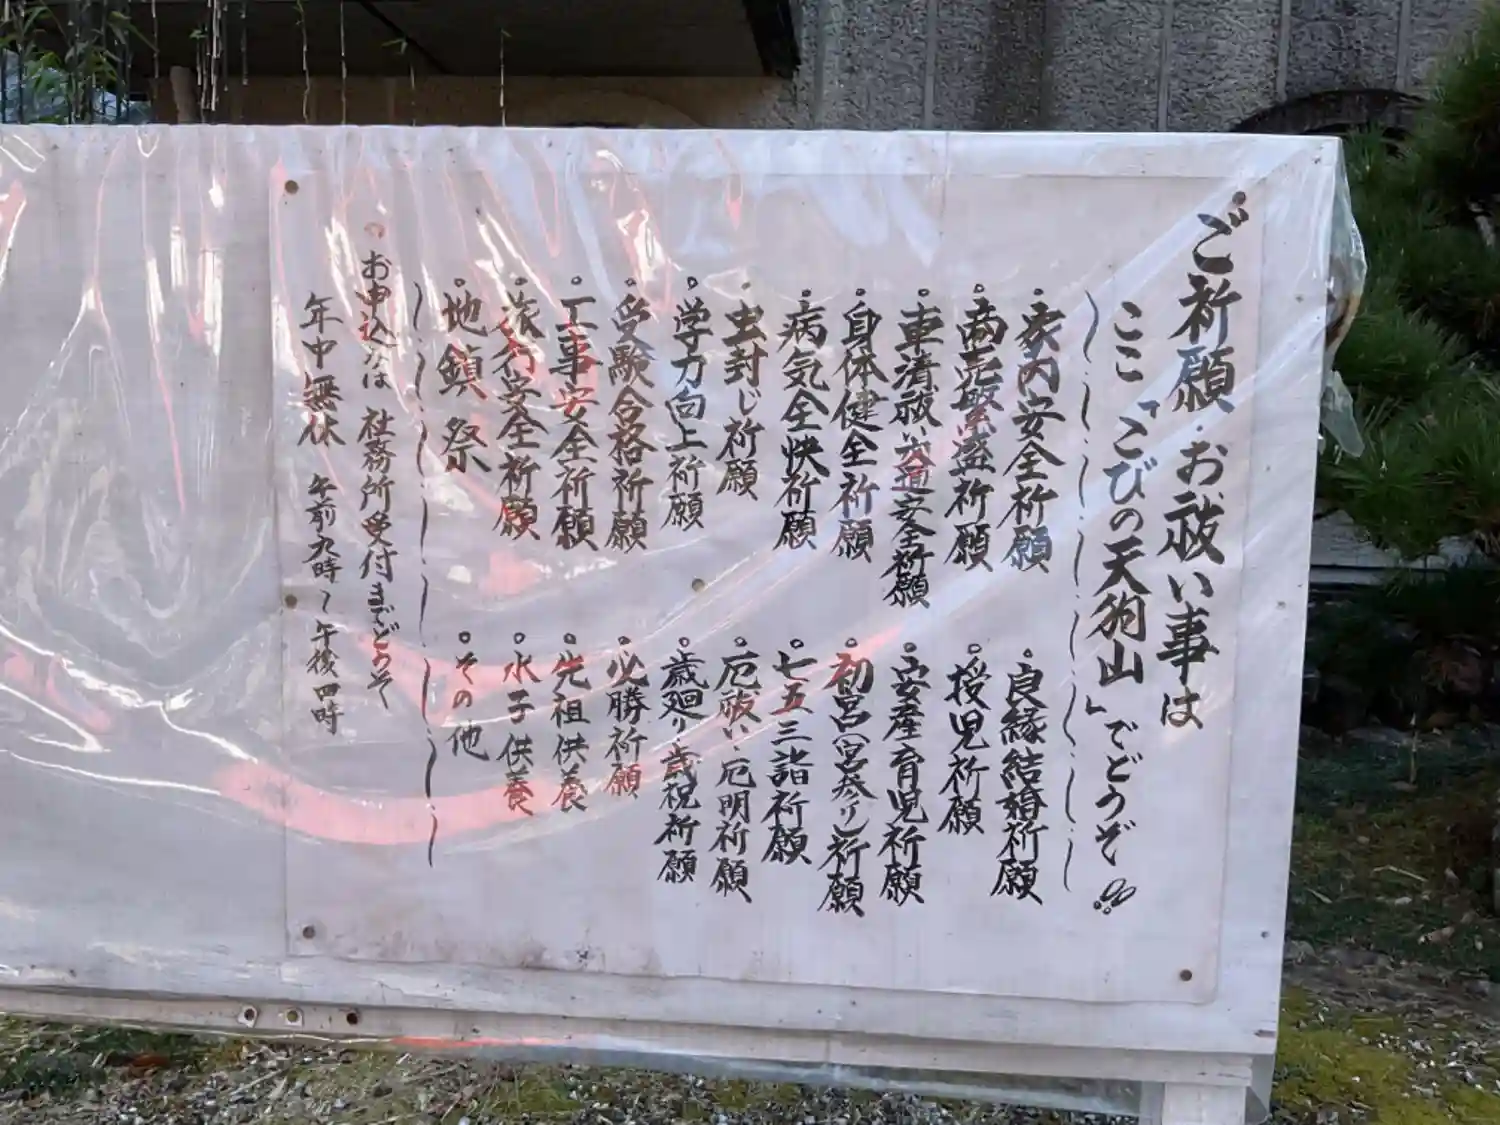 ご祈願・お祓い事は
ここ「こびの天狗山」でどうぞ!!
・家内安全祈願
・商売繁盛祈願
・車清祓い交通安全祈願
・身体健全祈願
・病気全快祈願
・虫封じ祈願
・学力向上祈願
・受験合格祈願
・工事安全祈願
・旅行安全祈願
・地鎮祭
・良縁結婚祈願
・授児祈願
・安産育児祈願
・初宮(宮参り)祈願
・七五三詣祈願
・厄祓い・厄明祈願
・歳廻り歳祝祈願
・必勝祈願
・先祖供養
・水子供養
・その他
お申込みは 社務所受付までどうぞ
年中無休 午前九時~午後四時